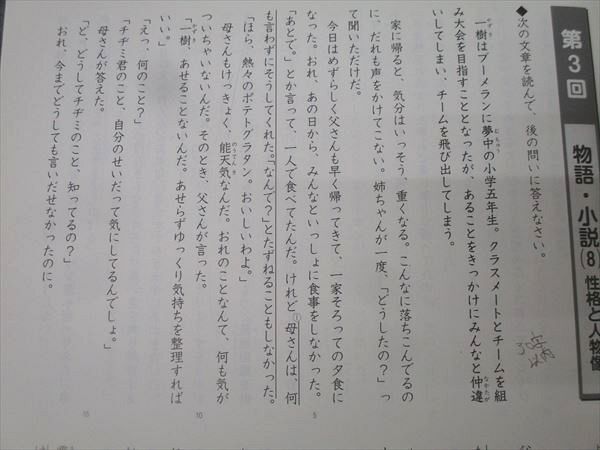 第3回
物語・小説(8) 性格と人物像
◆次の文章を読んで、後の問いに答えなさい。
30字以内
一樹はブーメランに夢中の小学五年生。クラスメートとチームを組
かずき
むちゅう
み大会を目指すこととなったが、あることをきっかけにみんなと仲違
なかたが
いしてしまい、チームを飛び出してしまう。
家に帰ると、気分はいっそう、重くなる。こんなに落ちこんでるの
に、だれも声をかけてこない。姉ちゃんが一度、「どうしたの?」っ
て聞いただけだ。
今日はめずらしく父さんも早く帰ってきて、一家そろっての夕食に
なった。おれ、あの日から、みんなといっしょに食事をしなかった。
5
「あとで。」とか言って、一人で食べてたんだ。けれど①母さんは、何
も言わずにそうしてくれた。「なんで?」とたずねることもしなかった。
「ほら、熱々のポテトグラタン。おいしいわよ。」
母さんもけっきょく、能天気なんだ。おれのことなんて、何も気が
のうてんき
ついちゃいないんだ。そのとき、父さんが言った。
10
「一樹、あせることないんだ。あせらずゆっくり気持ちを整理すれば
かずき
いい。」
「えっ、何のこと?」
「チヂミ君のこと、自分のせいだって気にしてるんでしょ。」
母さんが答えた。
「ど、どうしてチヂミのこと、知ってるの?」
15
おれ、今までどうしても言いだせなかったのに。